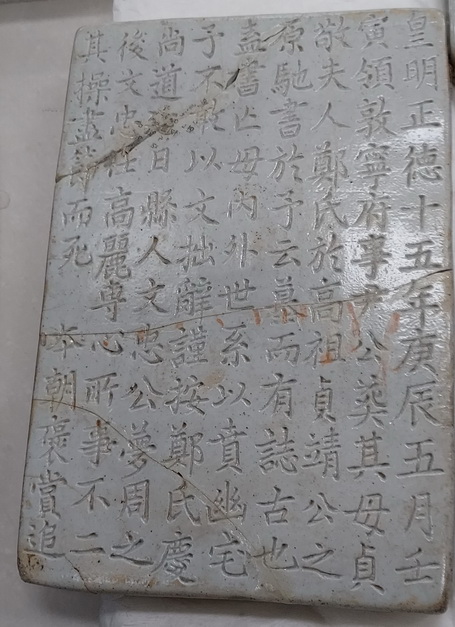 皇明正德十五年庚辰五月壬
寅領敦寧府事尹公葬其母貞
敬夫人鄭氏於高祖貞靖公之
原馳書於予云墓而有誌古也
盍書亡母內外世系以賁幽宅
予不敢以文拙辭謹按鄭氏慶
尚道日縣人文忠公夢周之
後文忠仕高麗專心所事不二
其操盡節而死 本朝褒賞追